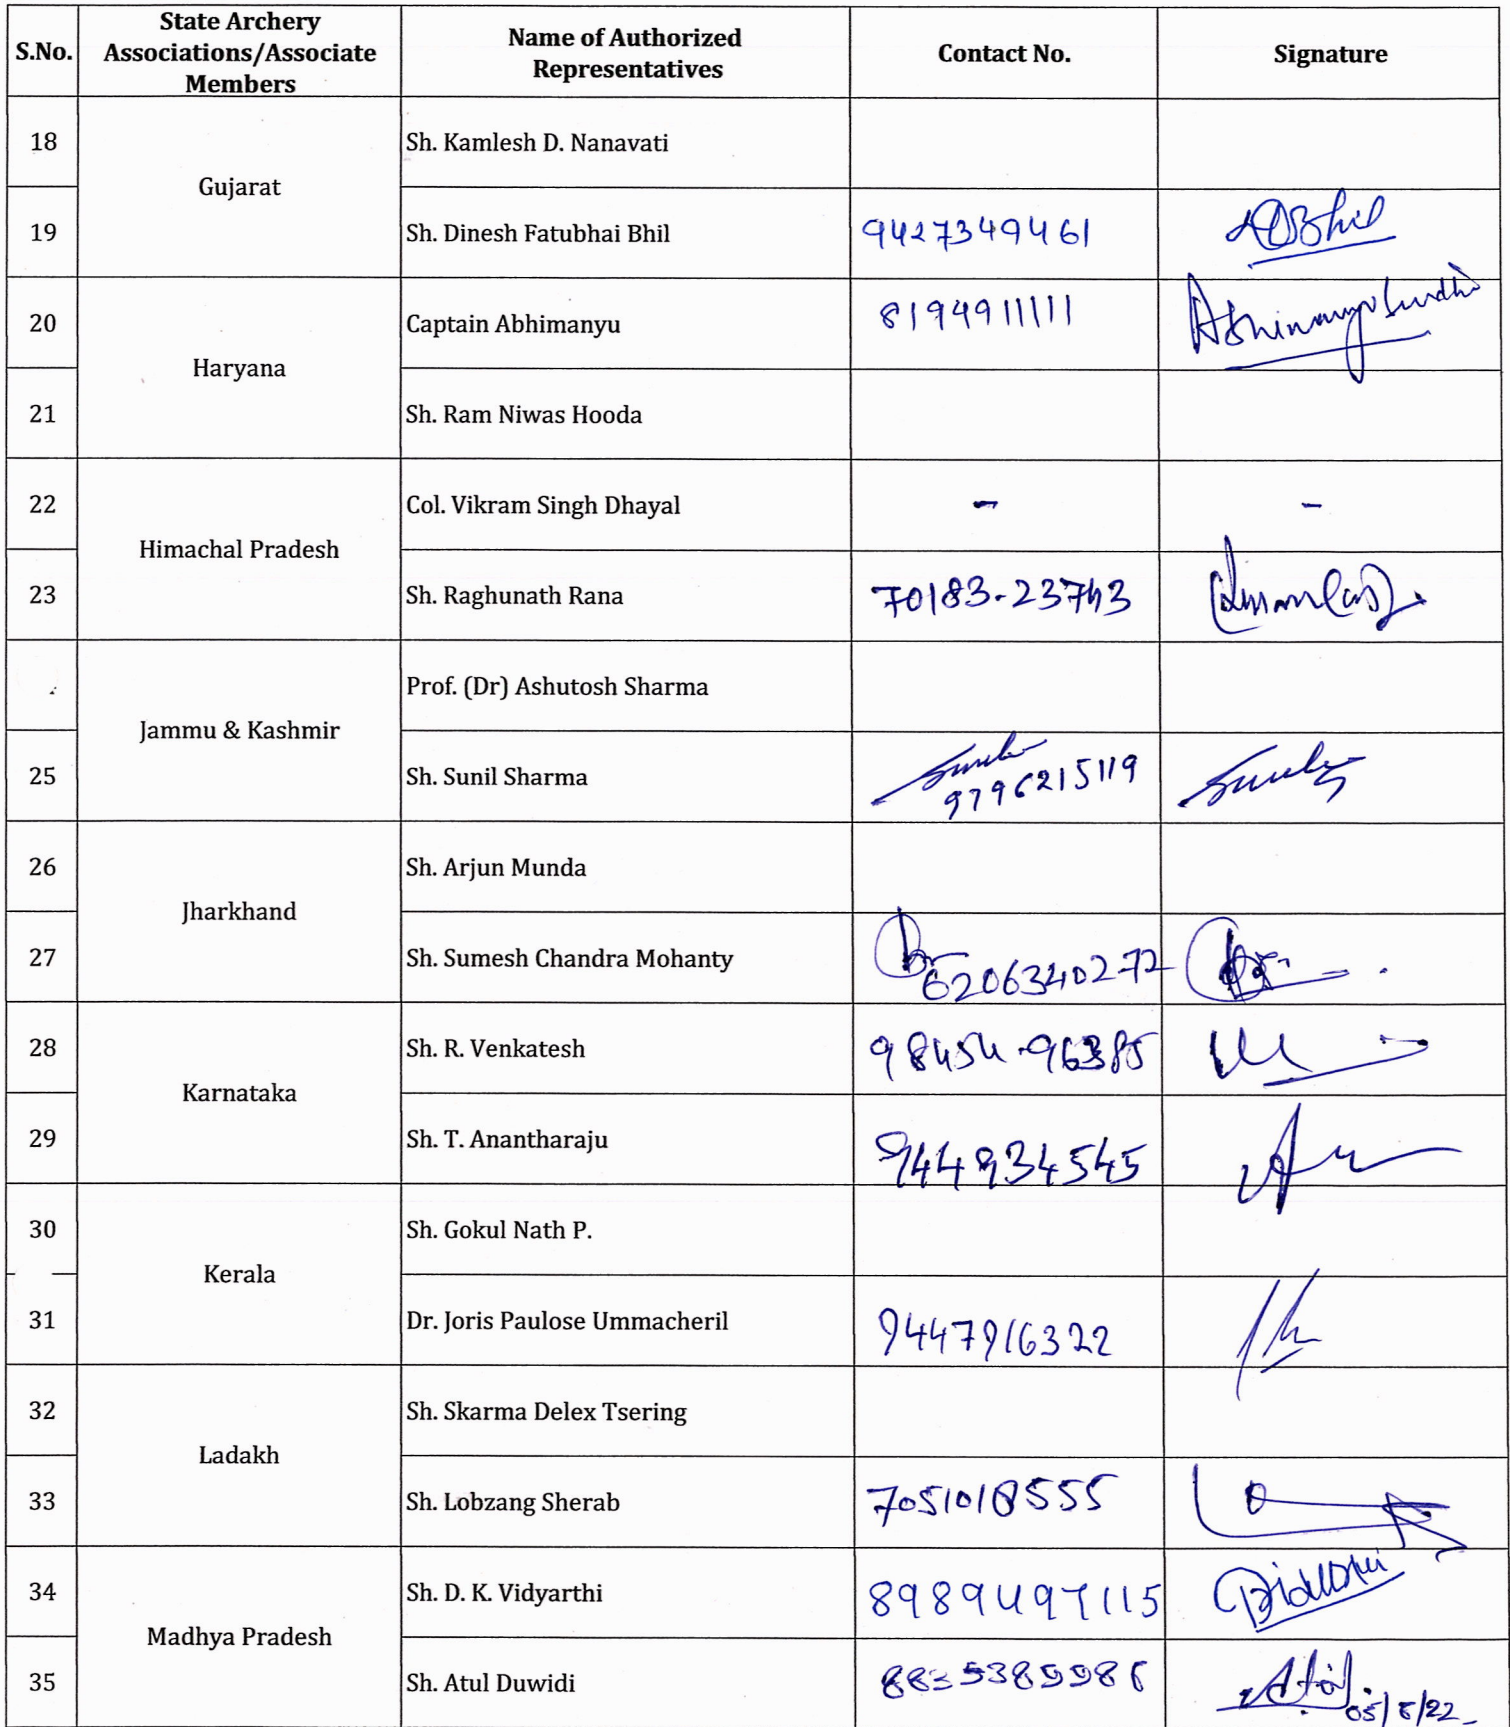 S.No. State Archery Associations/Associate Members Name of Authorized Representatives Contact No. Signature
18 Gujarat Sh. Kamlesh D. Nanavati
19 Sh. Dinesh Fatubhai Bhil 9427349461 Bhil
20 Haryana Captain Abhimanyu 8194911111 Abhimanyu Sindhu
21 Sh. Ram Niwas Hooda
22 Himachal Pradesh Col. Vikram Singh Dhayal - -
23 Sh. Raghunath Rana 70183-23743
Jammu & Kashmir Prof. (Dr) Ashutosh Sharma
25 Sh. Sunil Sharma 9796215119
26 Jharkhand Sh. Arjun Munda
27 Sh. Sumesh Chandra Mohanty 6206340272
28 Karnataka Sh. R. Venkatesh 98454-96385
29 Sh. T. Anantharaju 9449934545
30 Kerala Sh. Gokul Nath P.
31 Dr. Joris Paulose Ummacheril 9447916322
32 Ladakh Sh. Skarma Delex Tsering
33 Sh. Lobzang Sherab 7051018555
34 Madhya Pradesh Sh. D. K. Vidyarthi 8989497115
35 Sh. Atul Duwidi